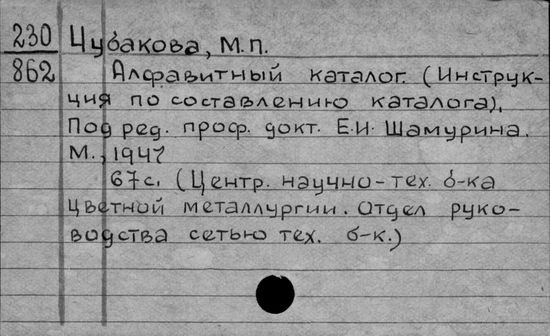 230 Чубакова, М.П.
862 Алфавитный каталог. (Инструк-
ция по составлению каталога).
Под ред. проф. докт. Е.И. Шамурина.
М., 1947
67с. (Центр. научно-тех. б-ка
цветной металлургии. Отдел руко-
водства сетью тех. б-к.)